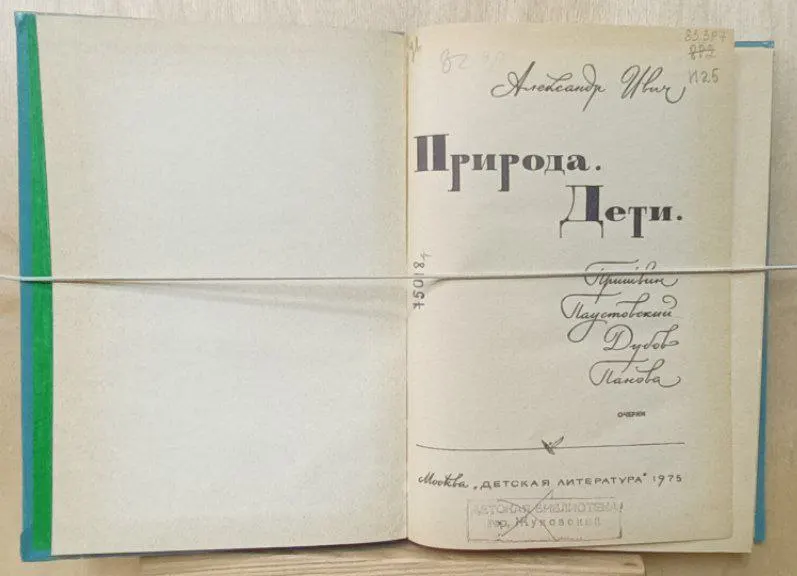 83.3Р7
872
И25
Александр Ивич
Природа.
Дети.
Пришвин
Паустовский
Дубов
Панова
ОЧЕРКИ
Москва „ДЕТСКАЯ ЛИТЕРАТУРА" 1975
ДЕТСКАЯ БИБЛИОТЕКА
гор. Жуковский
75018